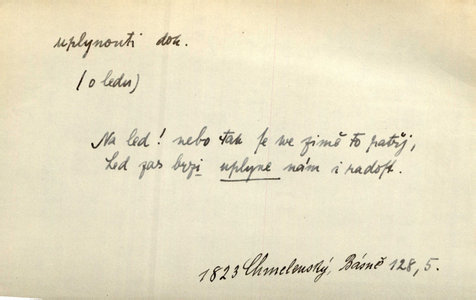 uplynouti dok.
(o ledu)
Na led! nebo tak je we zimě to
Led zas brzi uplyne nám i radost.
1823 Chmelenský, Básně 128, 5.